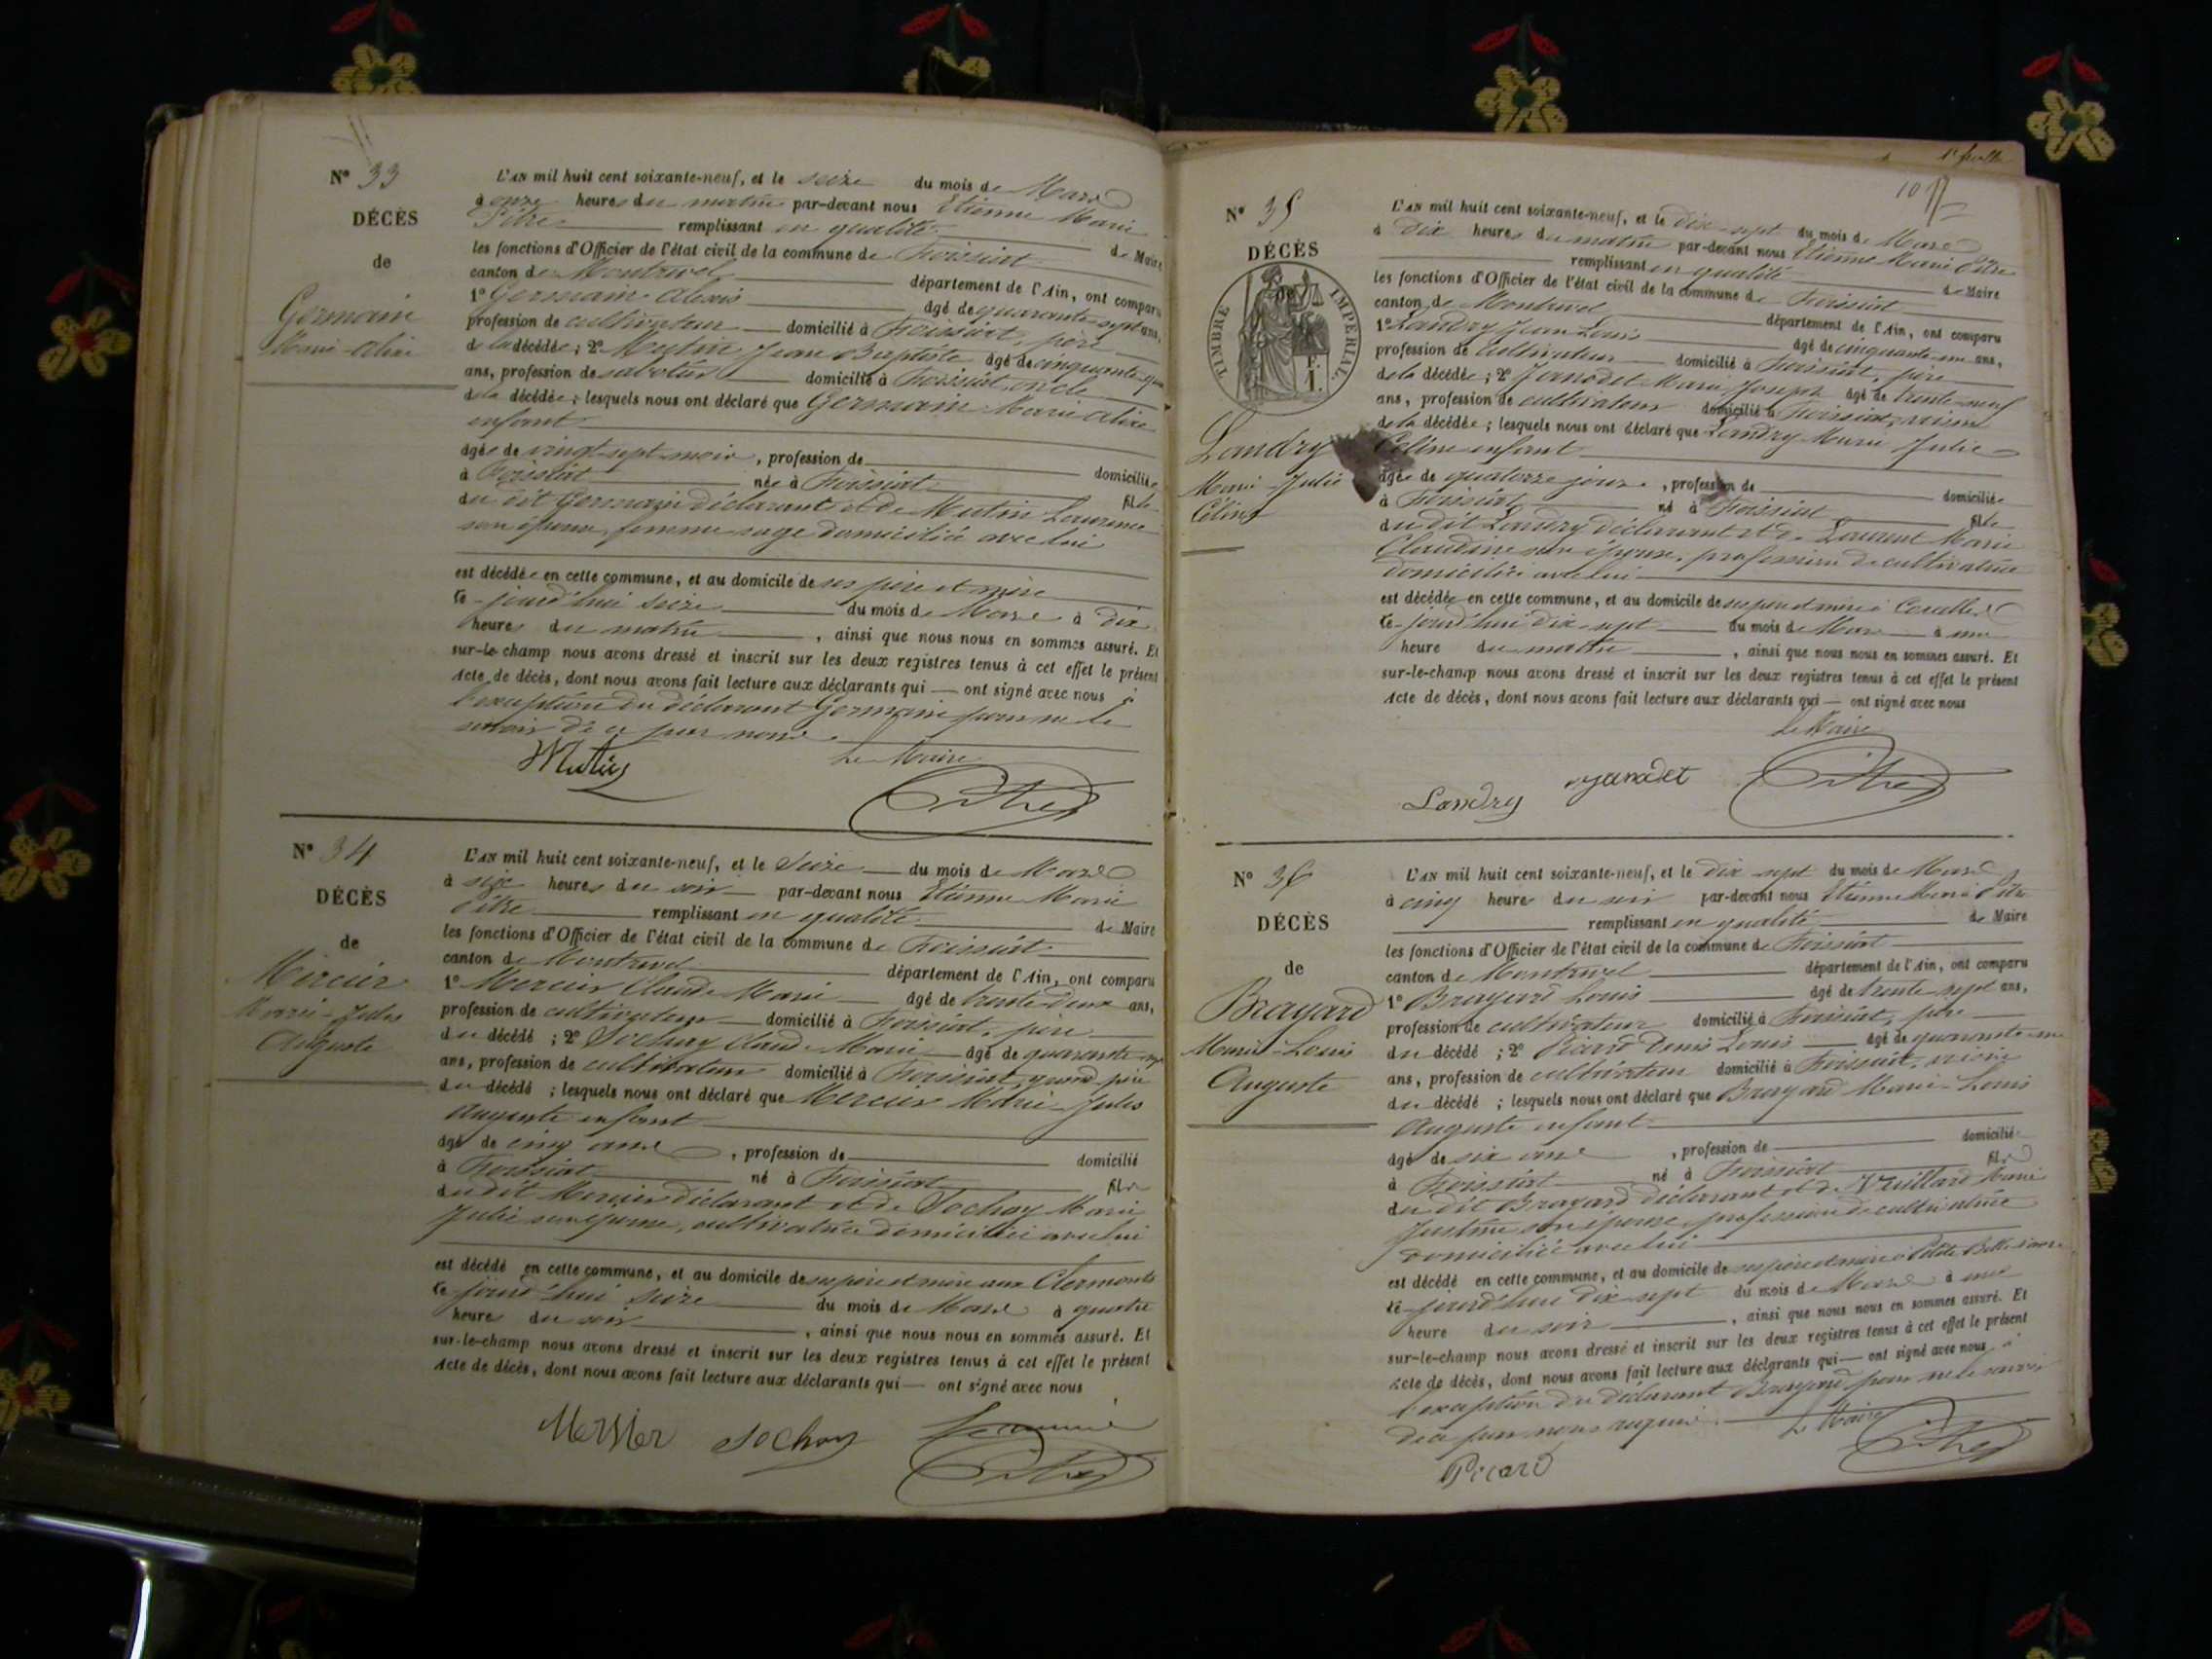 N° 33
DÉCÈS
de
Germain
Marie-Alixe
L'AN mil huit cent soixante-neuf, et le seize du mois de Mars
à onze heures du matin par-devant nous Etienne Marie
Pitre remplissant en qualité de Maire
les fonctions d'Officier de l'état civil de la commune de Foissiat
canton de Montrevel département de l'Ain, ont comparu
1° Germain Alexis âgé de quarante-sept ans,
profession de cultivateur domicilié à Foissiat, père
de la décédée; 2° Mutin Jean Baptiste âgé de cinquante
ans, profession de sabotier domicilié à Foissiat, oncle
de la décédée; lesquels nous ont déclaré que Germain Marie Alixe
enfant
âgée de vingt-sept mois, profession de domiciliée
à Foissiat née à Foissiat fille
du dit Germain déclarant et de Mutin Laurence
son épouse, femme sage domiciliée avec lui
est décédée en cette commune, et au domicile de ses père et mère
ce-jourd'hui seize du mois de Mars à dix
heures du matin, ainsi que nous nous en sommes assuré. Et
sur-le-champ nous avons dressé et inscrit sur les deux registres tenus à cet effet le présent
Acte de décès, dont nous avons fait lecture aux déclarants qui — ont signé avec nous à
l'exception du déclarant Germain pour ne le
savoir de ce par nous
Le Maire
Mutin
Pitre
N° 34
DÉCÈS
de
Mercier
Marie-Jules
Auguste
L'AN mil huit cent soixante-neuf, et le Seize du mois de Mars
à six heures du soir par-devant nous Etienne Marie
Pitre remplissant en qualité de Maire
les fonctions d'Officier de l'état civil de la commune de Foissiat
canton de Montrevel département de l'Ain, ont comparu
1° Mercier Claude Marie âgé de trente-deux ans,
profession de cultivateur domicilié à Foissiat, père
du décédé; 2° Sochay Claude Marie âgé de quarante
ans, profession de cultivateur domicilié à Foissiat, grand père
du décédé; lesquels nous ont déclaré que Mercier Marie Jules
Auguste enfant
âgé de cinq ans, profession de domicilié
à Foissiat né à Foissiat fils
du dit Mercier déclarant et de Sochay Marie
Julie son épouse, cultivatrice domiciliée avec lui
est décédé en cette commune, et au domicile de ses père et mère aux Clermonts
ce-jourd'hui seize du mois de Mars à quatre
heures du soir, ainsi que nous nous en sommes assuré. Et
sur-le-champ nous avons dressé et inscrit sur les deux registres tenus à cet effet le présent
Acte de décès, dont nous avons fait lecture aux déclarants qui — ont signé avec nous
Mersier Sochay Le maire
Pitre
10
N° 35
DÉCÈS
de
TIMBRE IMPÉRIAL
Landry
Marie-Julie
Céline
L'AN mil huit cent soixante-neuf, et le Dix-sept du mois de Mars
à Dix heures du matin par-devant nous Etienne Marie Pitre
remplissant en qualité de Maire
les fonctions d'Officier de l'état civil de la commune de Foissiat
canton de Montrevel département de l'Ain, ont comparu
1° Landry Jean Louis âgé de cinquante-un ans,
profession de cultivateur domicilié à Foissiat, père
de la décédée; 2° Janodet Marie Joseph âgé de trente-neuf
ans, profession de cultivateur domicilié à Foissiat, voisin
de la décédée; lesquels nous ont déclaré que Landry Marie Julie
Céline enfant
âgée de quatorze jours, profession de domiciliée
à Foissiat né à Foissiat fille
du dit Landry déclarant et de Laurent Marie
Claudine son épouse, profession de cultivatrice
domiciliée avec lui
est décédée en cette commune, et au domicile de ses père et mère à
ce-jourd'hui dix-sept du mois de Mars à une
heure du matin, ainsi que nous nous en sommes assuré. Et
sur-le-champ nous avons dressé et inscrit sur les deux registres tenus à cet effet le présent
Acte de décès, dont nous avons fait lecture aux déclarants qui — ont signé avec nous
Le Maire
Landry Janodet Pitre
N° 36
DÉCÈS
de
Brayard
Marie-Louis
Auguste
L'AN mil huit cent soixante-neuf, et le Dix sept du mois de Mars
à cinq heures du soir par-devant nous Etienne Marie Pitre
remplissant en qualité de Maire
les fonctions d'Officier de l'état civil de la commune de Foissiat
canton de Montrevel département de l'Ain, ont comparu
1° Brayard Louis âgé de trente-sept ans,
profession de cultivateur domicilié à Foissiat, père
du décédé; 2° Picard Denis Louis âgé de quarante-un
ans, profession de cultivateur domicilié à Foissiat, voisin
du décédé; lesquels nous ont déclaré que Brayard Marie-Louis
Auguste enfant
âgé de six ans, profession de domicilié
à Foissiat né à Foissiat fils
du dit Brayard déclarant et de Vuillard Marie
Justine son épouse, profession de cultivatrice
domiciliée avec lui
est décédé en cette commune, et au domicile de ses père et mère à
ce-jourd'hui Dix-sept du mois de Mars à une
heure du soir, ainsi que nous nous en sommes assuré. Et
sur-le-champ nous avons dressé et inscrit sur les deux registres tenus à cet effet le présent
Acte de décès, dont nous avons fait lecture aux déclarants qui — ont signé avec nous à
l'exception du déclarant Brayard pour ne le savoir
de ce par nous requis
Le Maire
Picard Pitre